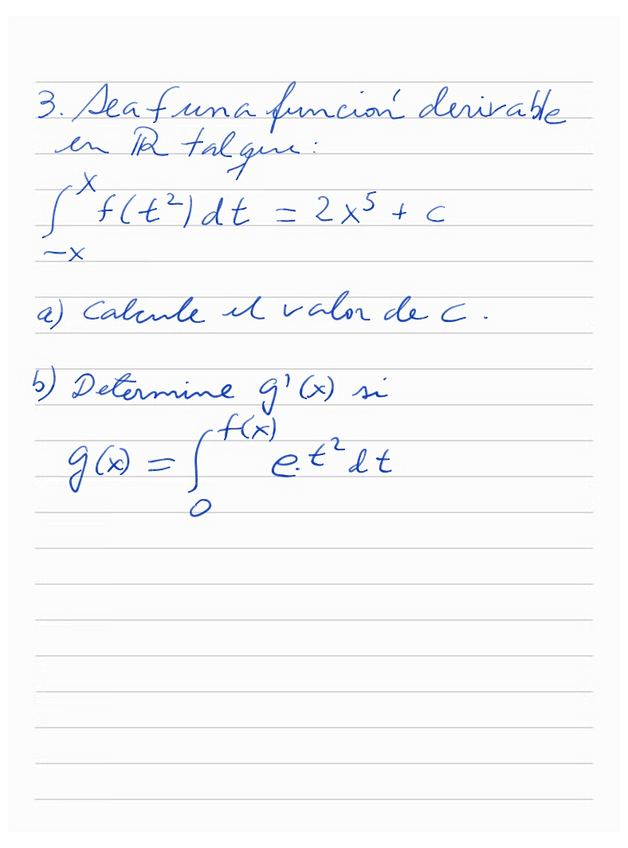 3. Sea f una función derivable
en ℝ tal que:
∫_{-x}^{x} f(t²) dt = 2x⁵ + c
a) Calcule el valor de c.
b) Determine g'(x) si
g(x) = ∫_{0}^{f(x)} e.t² dt